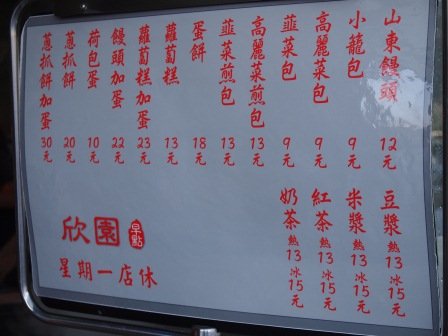 山東饅頭 12元
小籠包 9元
高麗菜包 9元
韮菜包 9元
高麗菜煎包 13元
韮菜煎包 13元
蛋餅 18元
蘿蔔糕 13元
蘿蔔糕加蛋 23元
饅頭加蛋 22元
荷包蛋 10元
蔥抓餅 20元
蔥抓餅加蛋 30元
豆漿 熱13 冰15元
米漿 熱13 冰15元
紅茶 熱13 冰15元
奶茶 熱13 冰15元
欣園 早點
星期一店休